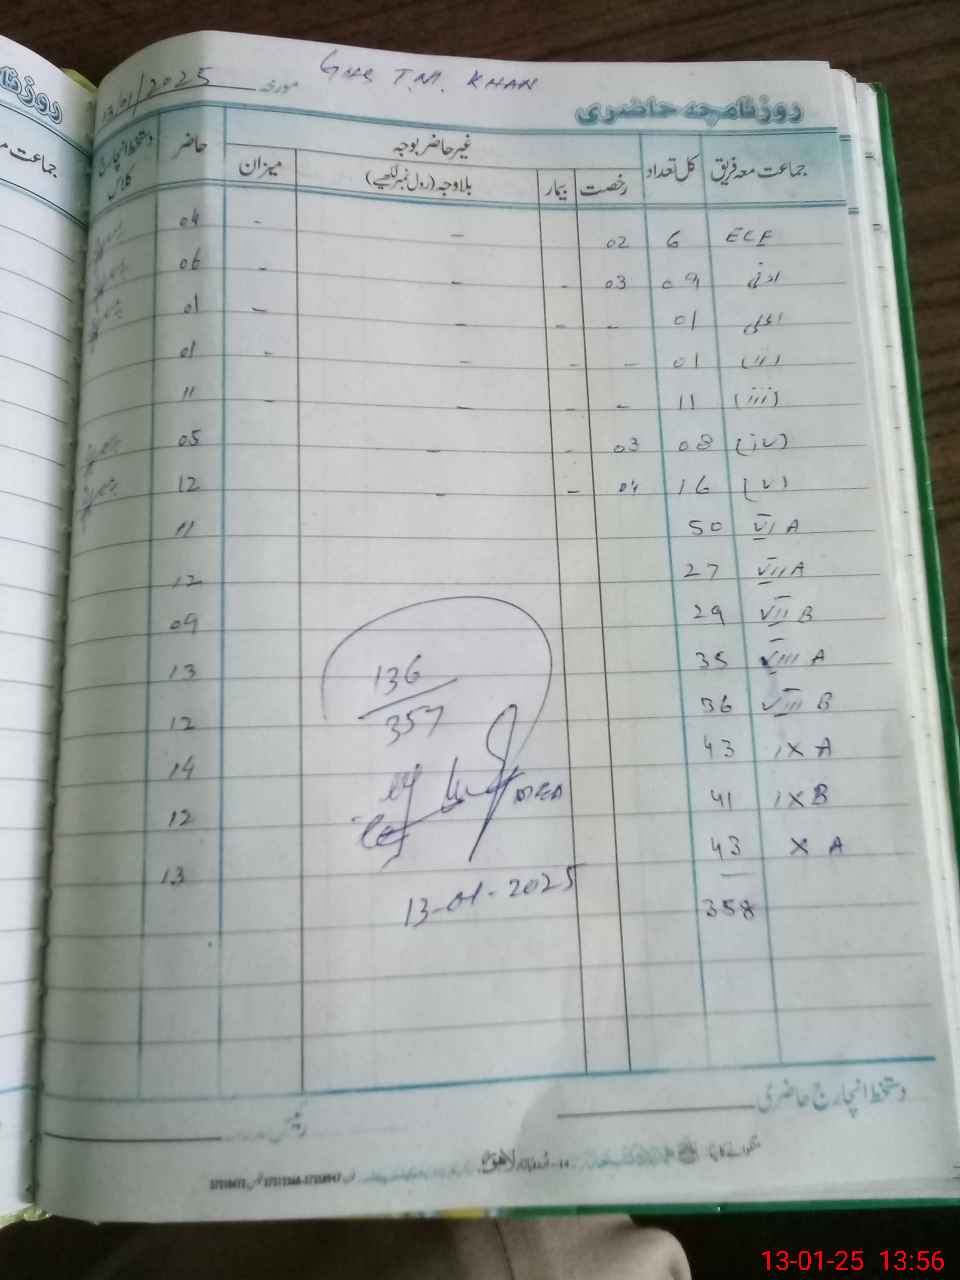 13/01/2025 مورخہ GHS T.M. KHAN
روزنامچہ حاضری
جماعت معہ فریق کل تعداد غیر حاضر بوجہ حاضر دستخط انچارج کلاس
رخصت بیمار بلاوجہ (رول نمبر لکھیے) میزان
ECE 6 02 - - 04
ادنیٰ 09 03 - - - 06
اعلیٰ 01 - - - - 01
(ii) 01 - - - - 01
(iii) 11 - - - - 11
(iv) 08 03 - - 05
(v) 16 04 - - 12
VI A 50 11
VII A 27 12
VII B 29 09
VIII A 35 13
VIII B 36 12
IX A 43 14
IX B 41 12
X A 43 13
358
136
357
MEA
13-01-2025
دستخط انچارج حاضری
رئیس
لاہور
13-01-25 13:56